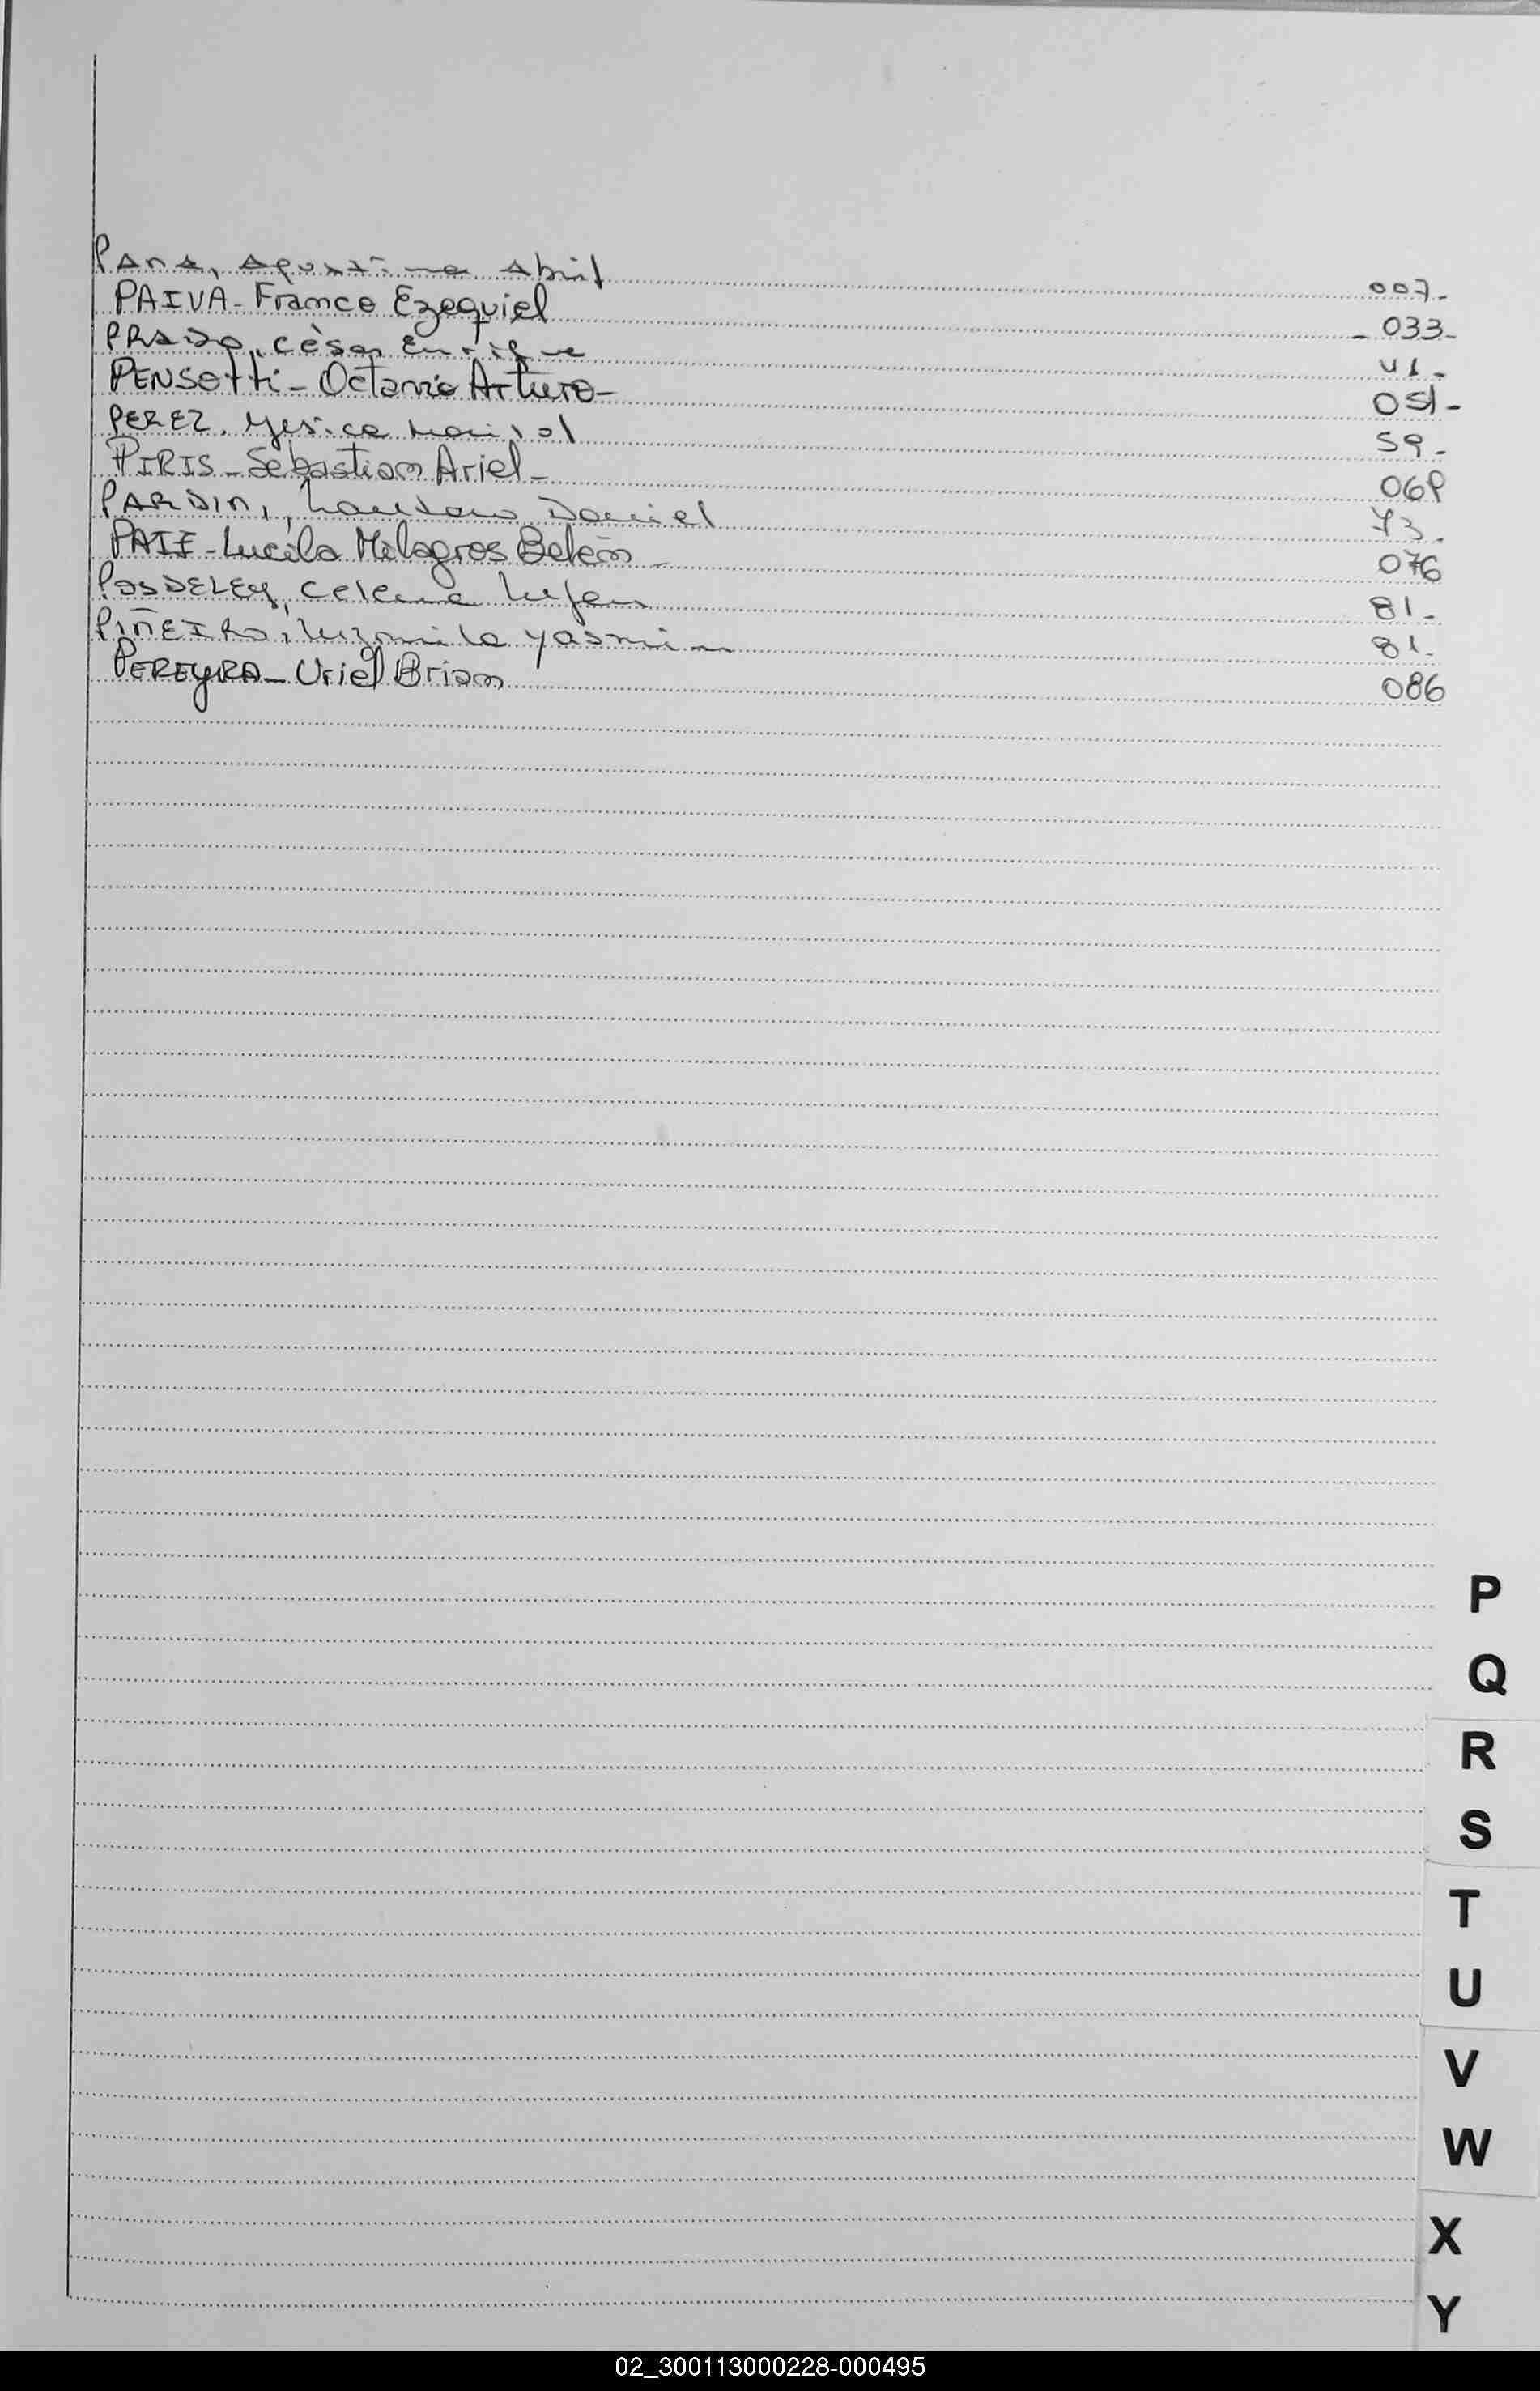 PAnA, Agustina Abril 007-
PAIVA- Franco Ezequiel - 033-
PRADO, Cèsar Enrique 41-
PENSotti- Octavio Arturo- 051-
PEREZ. Yesica Marisol 59-
PIRIS- Sebastian Ariel- 068
PARDIn, Lautaro Daniel 73.
PAIZ-Lucila Milagros Belén- 076
PosDELEY, Celene Lujan 81-
PIÑEIRO, Luzmila Yasmin 81.
PEREyRA- Uriel Brian 086
P
Q
R
S
T
U
V
W
X
Y
02_300113000228-000495